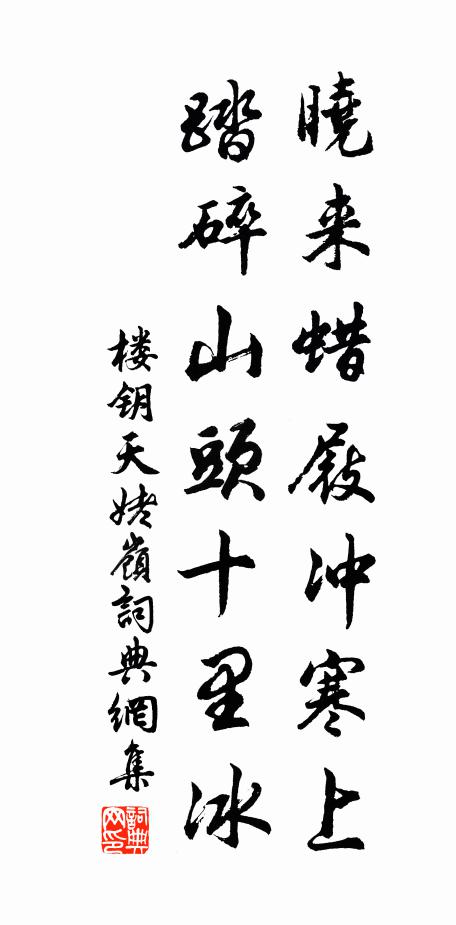 曉来蜡屐冲寒上
踏碎山頭十里冰
楼钥天姥嶺詞典網集
詞典網印